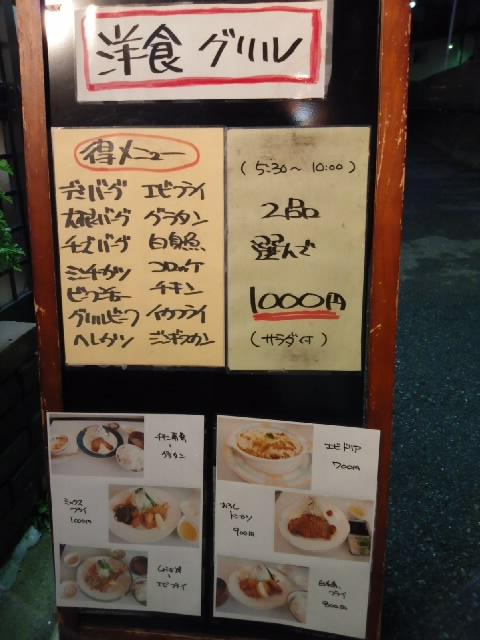 洋食 グリル
得メニュー
デミバーグ エビフライ
大根バーグ グラタン
チーズバーグ 白身魚
ミンチカツ コロッケ
ビーフシチュー チキン
グリルビーフ イカフライ
ヘレカツ ジンギスカン
(5:30〜10:00)
2品
選んで
1000円
(サラダ付)
グラタン
ミックス
フライ
1000円
エビフライ
エビドリア
700円
おろし
トンカツ
900円
白身魚
フライ
800円